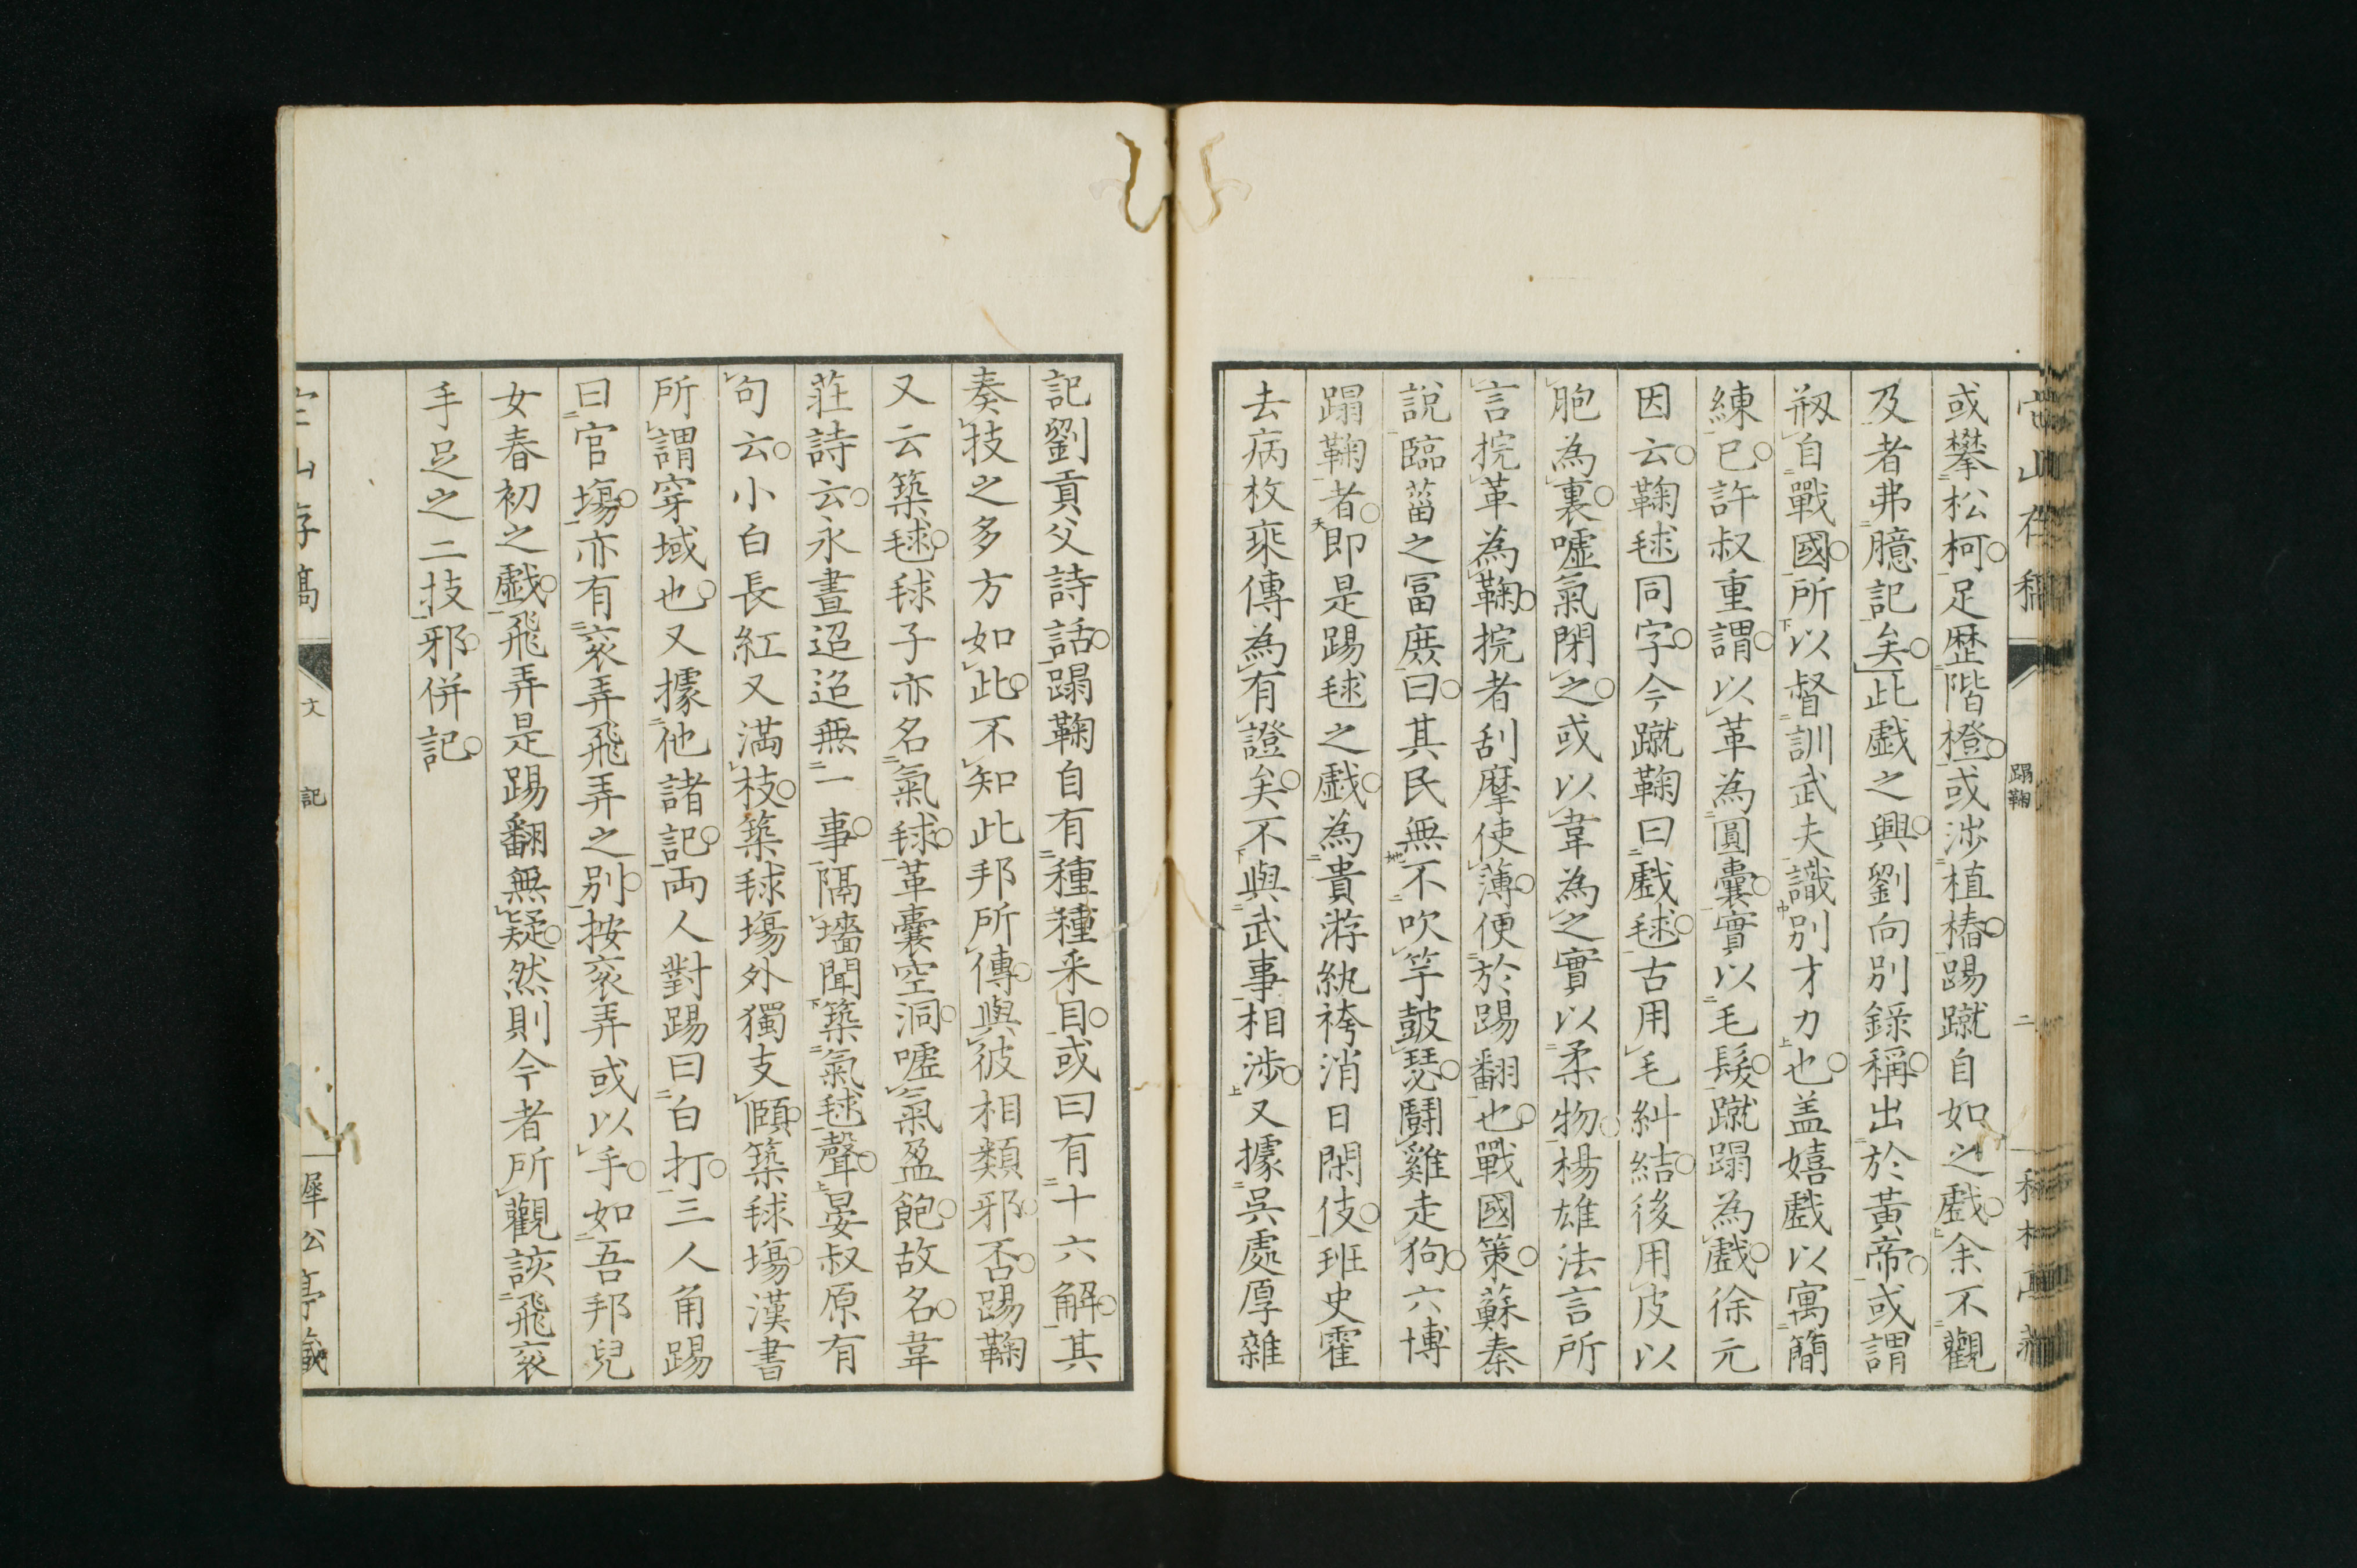 蹋鞠
二
或攀松柯足歷階橙或涉植樁踢蹴自如之戲余不觀
及者弗臆記矣此戯之興劉向別錄稱出於黃帝或謂
剏自戰國所以督訓武夫識別才力也盖嬉戲以寓簡
練已許叔重謂以革為圓囊實以毛髮蹴蹋為戲徐元
因云鞠毬同字今蹴鞠曰戲毬古用毛糾結後用皮以
胞為裏噓氣閉之或以韋為之實以柔物楊雄法言所
言捖革為鞠捖者刮摩使薄便於踢翻也戰國策蘇秦
說臨菑之冨庶曰其民無不吹竽鼓瑟鬪雞走狗六博
蹋鞠者即是踢毬之戲為貴游紈袴消日閑伎班史霍
去病枚乘傳為有證矣不與武事相涉又據吳處厚雜
記劉貢父詩話蹋鞠自有種種釆目或曰有十六解其
奏技之多方如此不知此邦所傳與彼相類邪否踢鞠
又云築毬毬子亦名氣毬革囊空洞噓氣盈飽故名韋
莊詩云永晝迢迢無一事隔墻聞築氣毬聲晏叔原有
句云小白長紅又滿枝築毬塲外獨支頤築毬塲漢書
所謂穿域也又據他諸記両人對踢曰白打三人角踢
曰官塲亦有衮弄飛弄之別按衮弄或以手如吾邦兒
女春初之戯飛弄是踢翻無疑然則今者所觀該飛衮
手足之二技邪併記
文
記